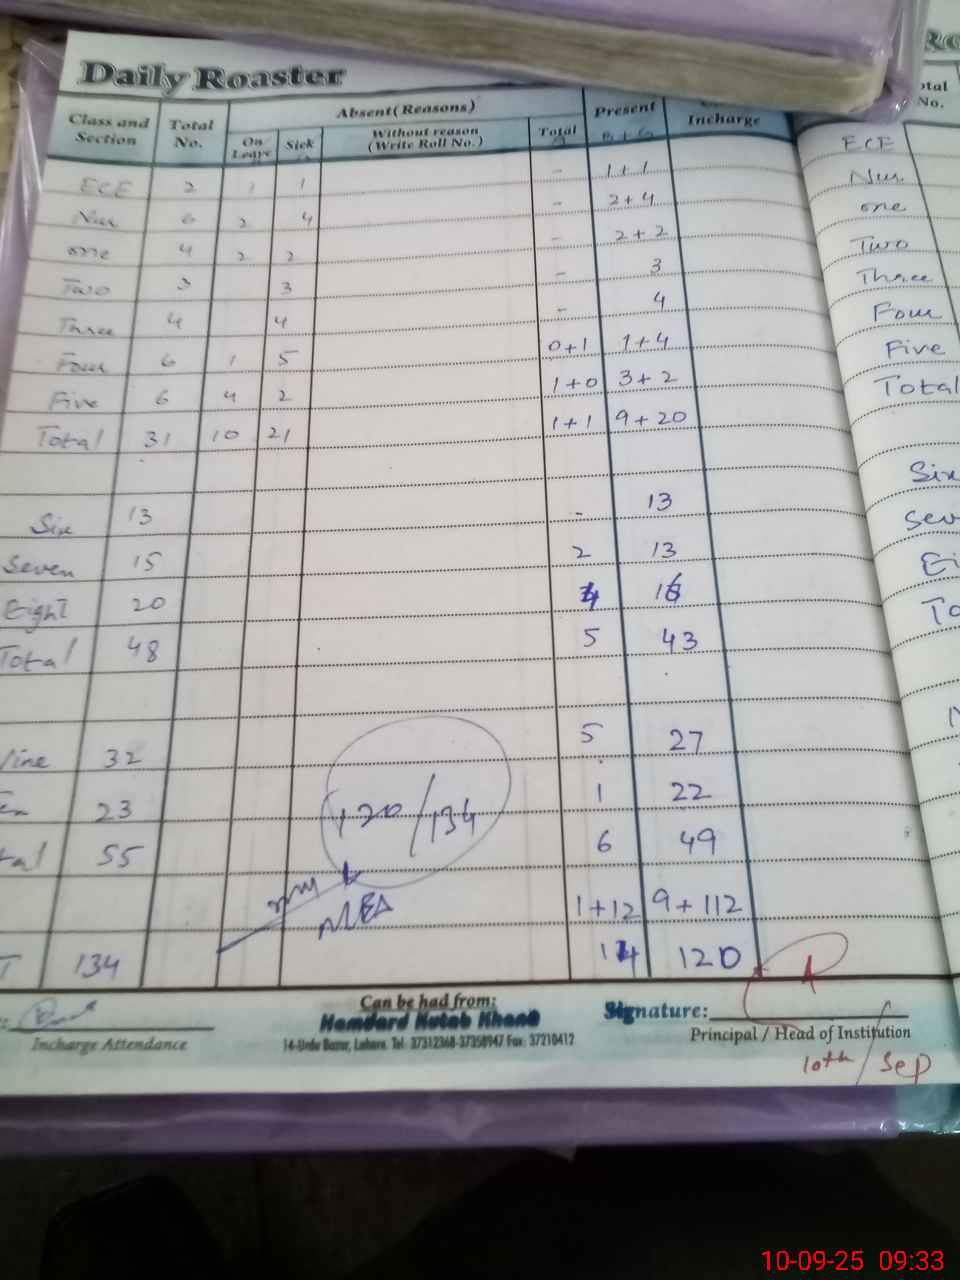 Daily Roaster
Class and Section Total No. Absent (Reasons) Present Incharge
On Leave Sick Without reason (Write Roll No.) Total B+G
ECE 2 1 1 - 1+1
Nur 6 2 4 - 2+4
one 4 2 2 - 2+2
Two 3 3 - 3
Three 4 4 - 4
Four 6 1 5 0+1 1+4
Five 6 4 2 1+0 3+2
Total 31 10 21 1+1 9+20
Six 13 - 13
Seven 15 2 13
Eight 20 4 16
Total 48 5 43
Nine 32 5 27
Ten 23 1 22
120/134
tal 55 6 49
MEA 1+12 9+112
T 134 14 120
Incharge Attendance
Can be had from:
Hamdard Kutab Khana
14-Urdu Bazar, Lahore. Tel: 37312368-37358947 Fax: 37210412
Signature:
Principal / Head of Institution
10th/Sep
otal No.
ECE
Nur
one
Two
Three
Four
Five
Total
Six
Sev
Ei
To
N
10-09-25 09:33